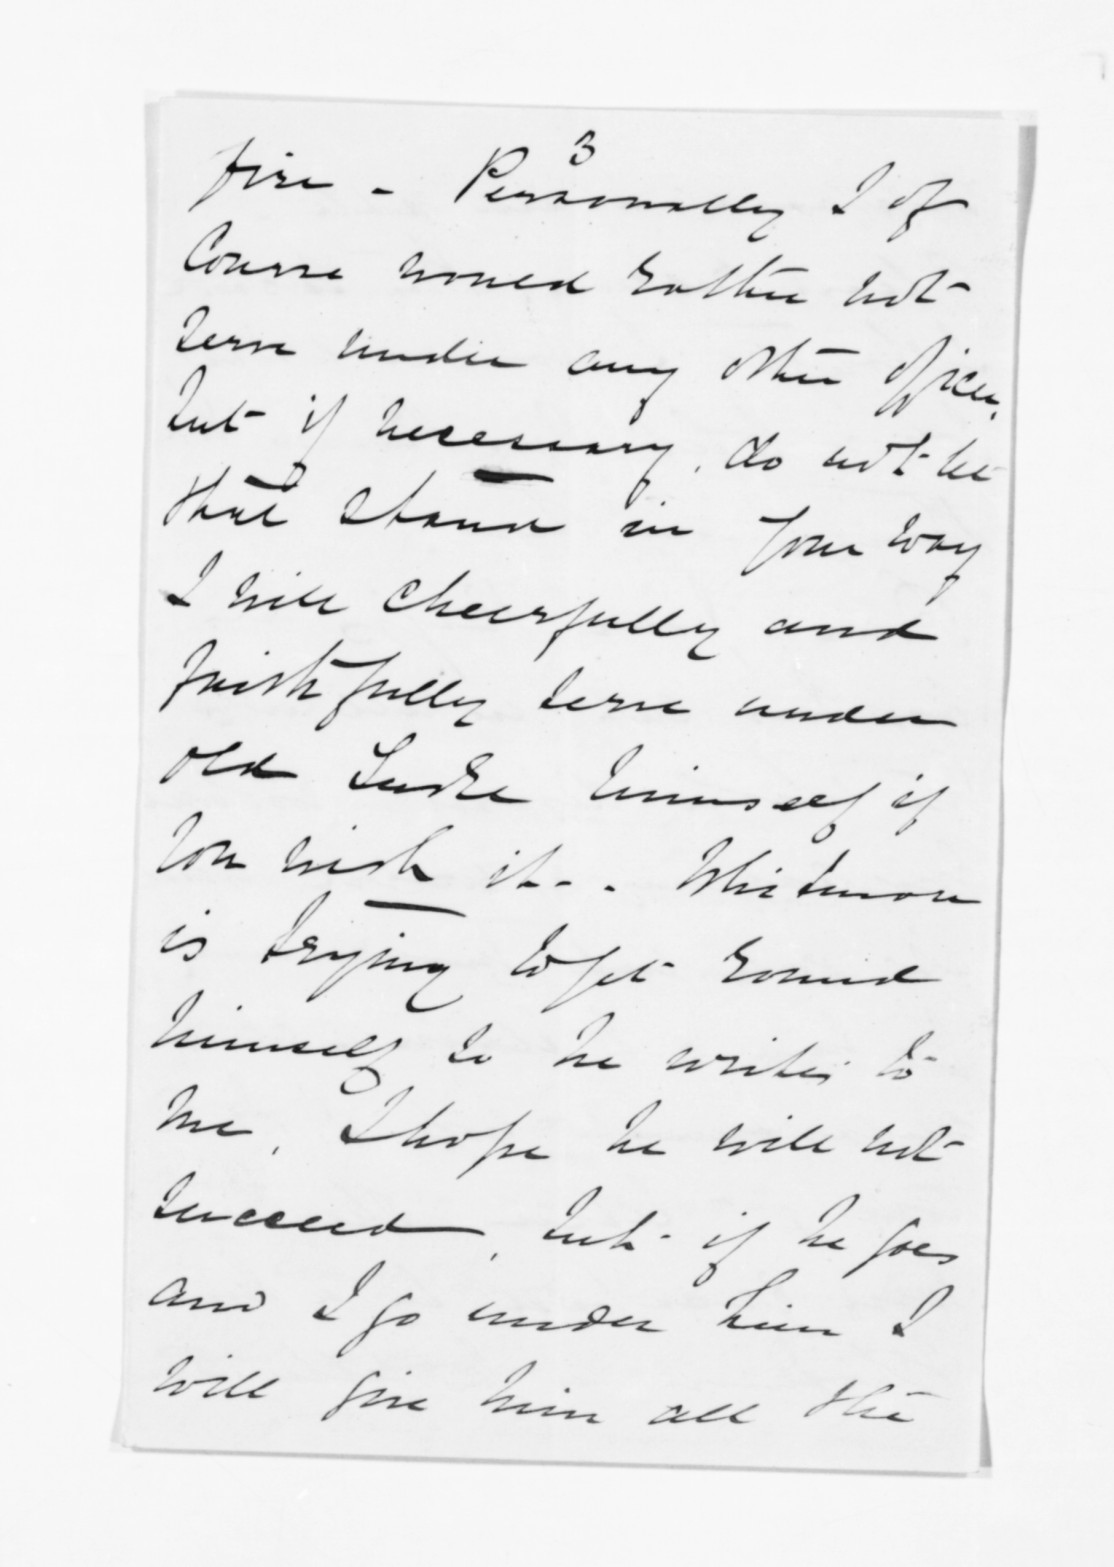 3
fire - Personally I of
Course would rather not
serve under any other officer,
but if necessary, do not let
that stand in your way
I will cheerfully and
faithfully serve under
old himself if
you wish it - . Whitmore
is trying to get round
himself so he writes to
me, I hope he will not
succeed, but if he goes
and I go under him I
will give him all the